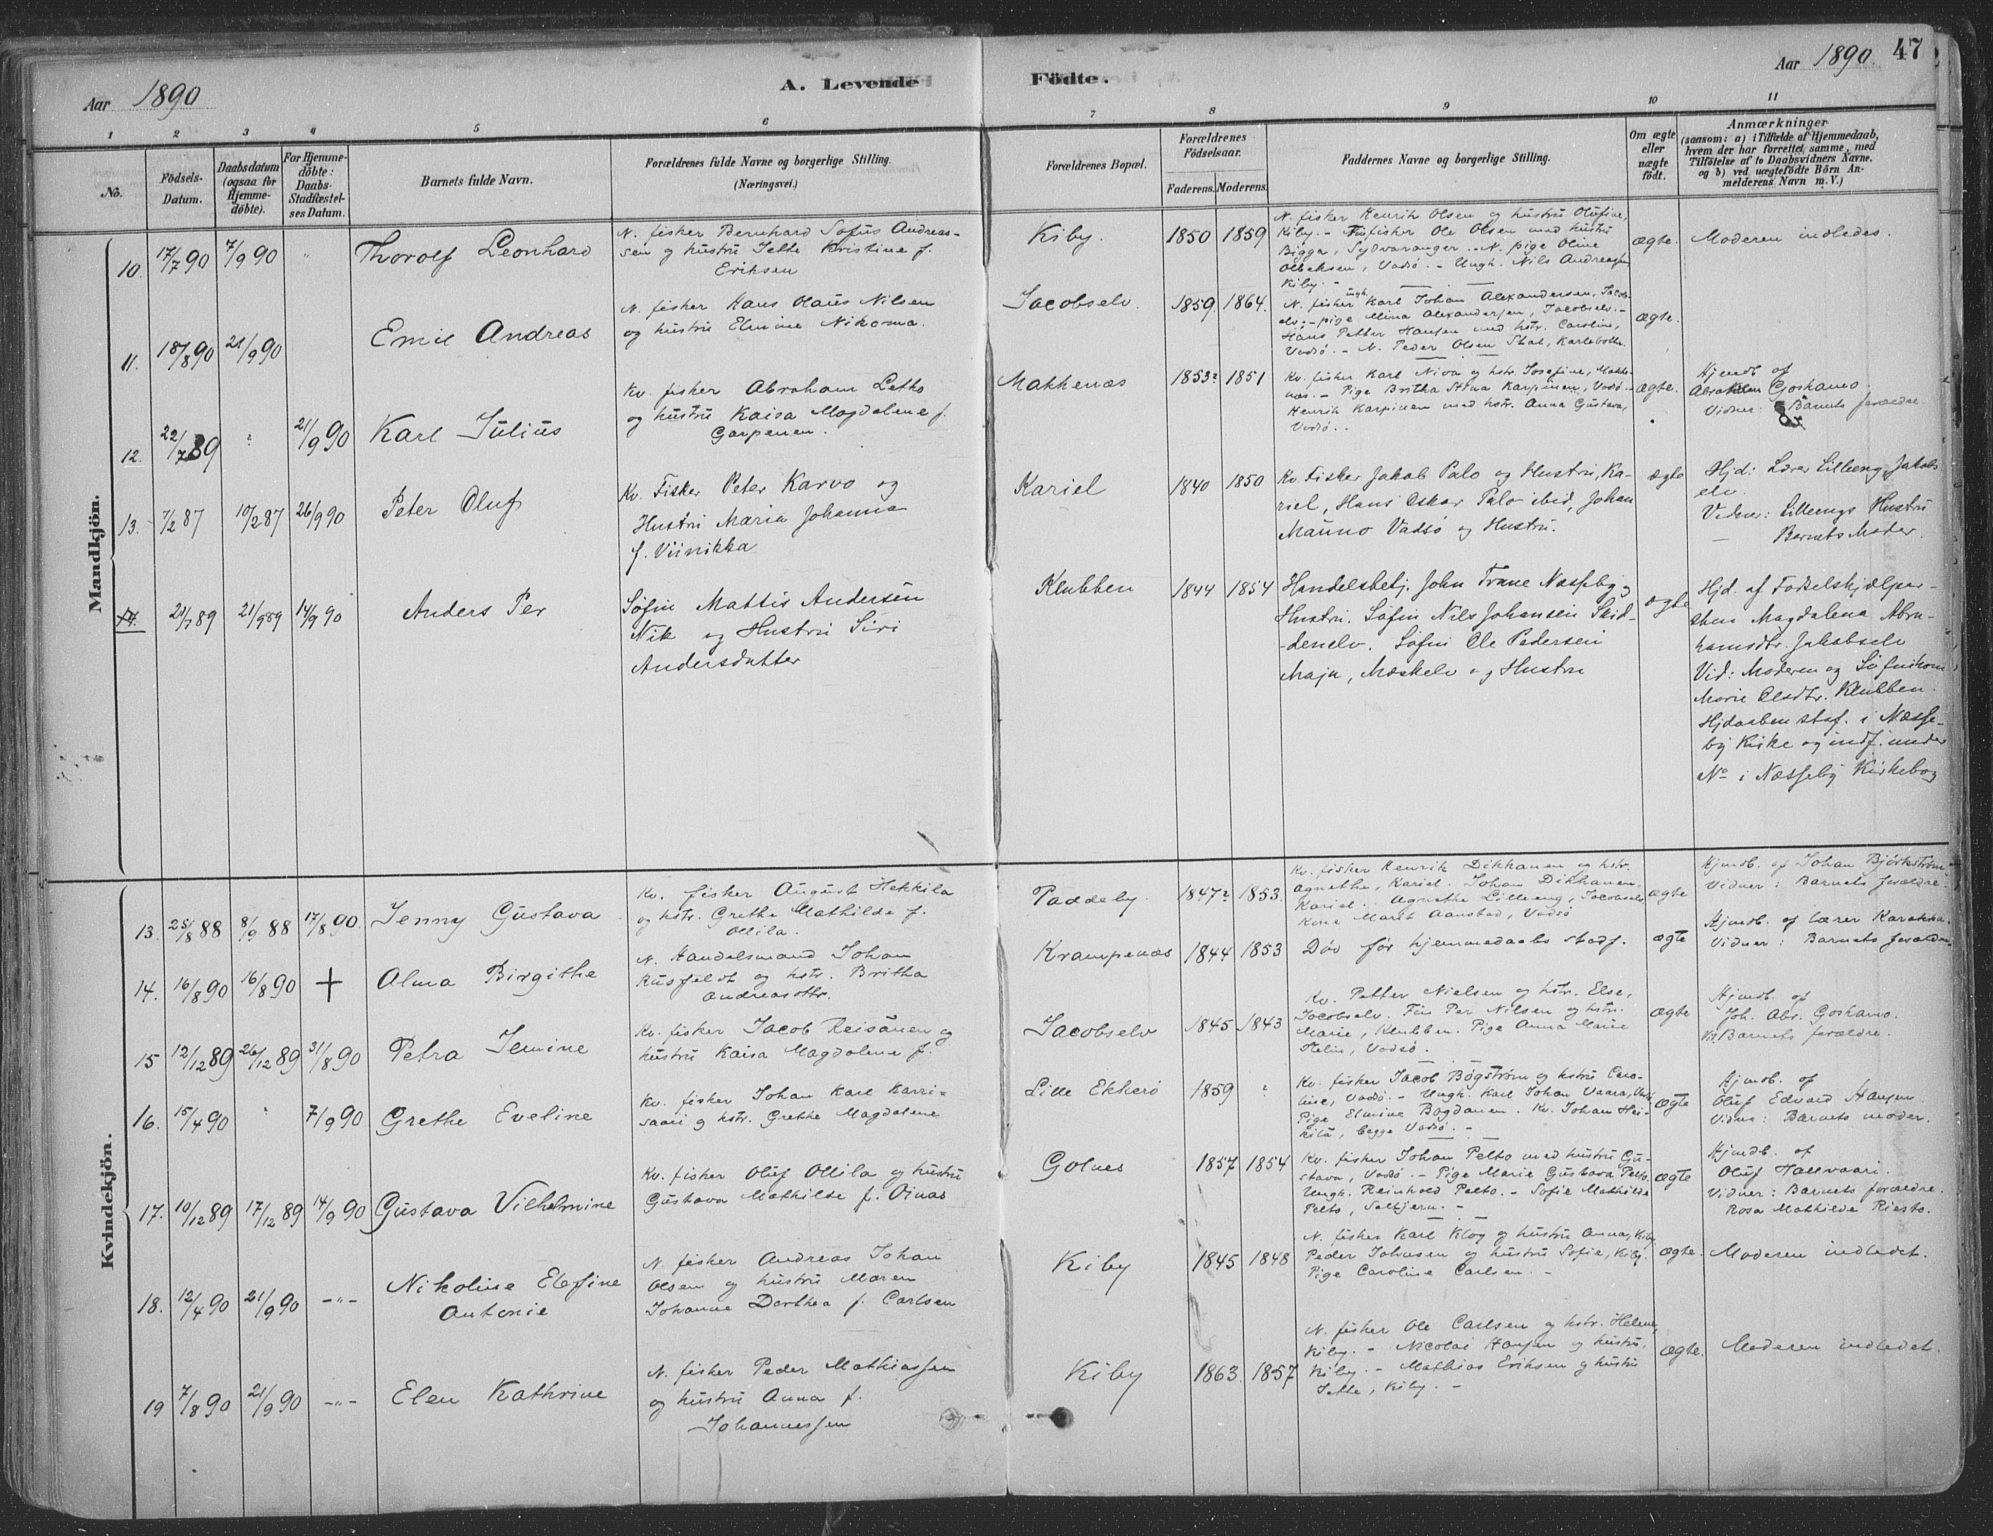 Aar 1890
A. Levende
Födte.
Aar 1890
47
1 2 3 4 5 6 7 8 9 10 11
No.
Födsels-Datum.
Daabsdatum (ogsaa for Hjemmedöbte).
For Hjemmedöbte: Daabs-Stadfæstelses Datum.
Barnets fulde Navn.
Forældrenes fulde Navne og borgerlige Stilling.
(Næringsvei.)
Forældrenes Bopæl.
Forældrenes Födselsaar.
Faderens. Moderens.
Faddernes Navne og borgerlige Stilling.
Om ægte eller uægte födt.
Anmærkninger
(saasom: a) i Tilfælde af Hjemmedaab,
hvem der har forrettet samme, med
Tilföielse af to Daabsvidners Navne.
og b) ved uægtefödte Börn An-
melderens Navn m. V.)
Mandkjön.
10. 17/7 90 7/9 90 " Thorolf Leonhard
N. fisker Bernhard Sofus Andreas-
sen og hustru Jette Kristine f.
Eriksen
Kiby. 1850 1859
N. fisker Henrik Olsen og hustru Olufine,
Kiby. - fisker Ole Olsen med hustru
Bigga, Sydvaranger. - N. pige Oline
Olbeksen, Vadsö. - Ungk. Nils Andreassen
Kiby. -
ægte. Moderen indledes.
11. 18/8 90 21/9 90 Emil Andreas
N. fisker Hans Olaus Nilsen
og hustru Elmine Nikoma.
Jacobselv. 1859. 1864.
N. fisker ungk. Karl Johan Alexandersen, Jacob-
elv; - pige Mina Alexandersen, Jacobselv. -
Hans Petter Hansen med hstr. Caroline,
Vadsö. - N. Peder Olsen Stal, Karlebotn.
ægte.
12. 22/7 89 " 21/9 90 Karl Julius
Kv. fisker Abraham Letto
og hustru Kaisa Magdalene f.
Garpenen.
Makkenæs 1853? 1851
Kv. fisker Karl Niva og hstr. Josefine, Makke-
næs. - Pige Britha Stina Karpinen, Vadsö. -
Henrik Karpinen med hstr. Anna Gustava,
Vadsö.
ægte.
Hjmdb. af
Abraham Goshamo.
Vidner: Barnets forældre.
13. 7/2 87 10/2 87 26/9 90 Peter Oluf
Kv. Fisker Peter Karvo og
Hustru Maria Johanna
f. Viinikka
Kariel 1840 1850
Kv. Fisker Jakob Palo og Hustru, Ka-
riel, Hans Oskar Palo ibid, Johan
Mauno Vadsö og Hustru.
ægte
Hjd: Lærer Lilleeng, Jakobs
elv.
Vidner: Lilleengs Hustru
— Barnets Moder.
14. 89 21/9 89 14/9 90 Anders Per
Söfin Mattis Andersen
Nik og Hustru Siri
Andersdatter
Klubben 1844 1854
Handelsbetj. John Trane Næsseby og
Hustru. Söfin Nils Johansen Skid-
denelv. Söfin Ole Pedersen
Maja, Mæskelv og Hustru
ægte
Hjd. af Födselshjælper-
sken Magdalena Abra-
hamsdtr. Jakobselv
Vid: Moderen og Söfinkone
Marie Olsdtr. Klubben.
Hjdaaben staf. i Næsse-
by Kirke og indf. under
No i Næsseby Kirkebog
Kvindekjön.
13. 25/8 88 8/9 88 17/8 90. Jenny Gustava
Kv. fisker August Hekkila
og hstr. Grethe Mathilde f.
Ollila.
Paddeby. 1847? 1853
Kv. fisker Henrik Dikkanen og hstr.
Agnethe, Kariel. Johan Dikkanen,
Kariel. Agnethe Lilleeng, Jacobselv
Kone Marit Aanstad, Vadsö
ægte
Hjmdb. af Johan Björkström.
Vidner: Barnets forældre.
14. 16/8 90 16/8 90 + Alma Birgithe
N. Handelsmand Johan
Kusfeldt og hstr. Britha
Andreasdttr.
Krampenæs 1844 1853
Död för hjemmedaabs stadf. ægte
Hjmdb. af lærer Karakka.
Vidner: Barnets forældre
15 12/12 89 26/12 89 31/8 90 Petra Jemine
Kv. fisker Jacob Reisänen og
hustru Kaisa Magdalene f.
Jacobselv 1845 1843
Kv. Petter Nielsen og hstr. Else,
Jacobselv. Fin Per Nilsen og hstr.
Marie, Klubben. Pige Anna Marie
Helin, Vadsö.
ægte
Hjmdb. af
Joh. Abr. Goshamo.
V. Barnets forældre.
16. 15/4 90 " 7/9 90 Grethe Eveline
Kv. fisker Johan Karl Karri-
saari og hstr. Grethe Magdalene
Lille Ekkerö 1859 "
Kv. fisker Jacob Bogström og hstru Caro-
line, Vadsö. - Ungk. Karl Johan Vaara,
Pige Elmine Bogdanen. Kv. Johan Hei-
kila, begge Vadsö. -
ægte
Hjmdb. af
Oluf Edvard Hansen.
Vidner: Barnets moder.
17. 10/12 89 17/12 89 14/9 90 Gustava Vilhelmine
Kv. fisker Oluf Ollila og hustru
Gustava Mathilde f. Oinas
Golnes 1857 1854
Kv. fisker Johan Pelto med hustru Gu-
stava, Vadsö. - Pige Marie Gustava Pelto.
Ungk. Reinhold Pelto. - Sofie Mathilde
Pelto, Saltjern. -
ægte
Hjmdb. af
Oluf Hallvaari.
Vidner: Barnets forældre.
Rosa Mathilde Riesto.
18. 12/4 90 21/9 90 -"- Nikoline Elefine
Antonie
N. fisker Andreas Johan
Olsen og hustru Maren
Johanne Dorthea f. Carlsen
Kiby 1845 1848
N. fisker Karl Klog og hustru Anna, Kiby
Peder Johnsen og hustru Sofie, Kiby.
Pige Caroline Carlsen. -
ægte. Moderen indledet.
19 7/8 90 21/9 90 -"- Elen Kathrine
N. fisker Peder Mathiassen
og hustru Anna f.
Johannessen
Kiby 1863. 1857
N. fisker Ole Carlsen og hstr. Helene,
Kiby. - Nicolai Hansen og hustru,
Kiby. - Mathias Eriksen og hustru
Jette, Kiby. -
ægte. Moderen indledet.